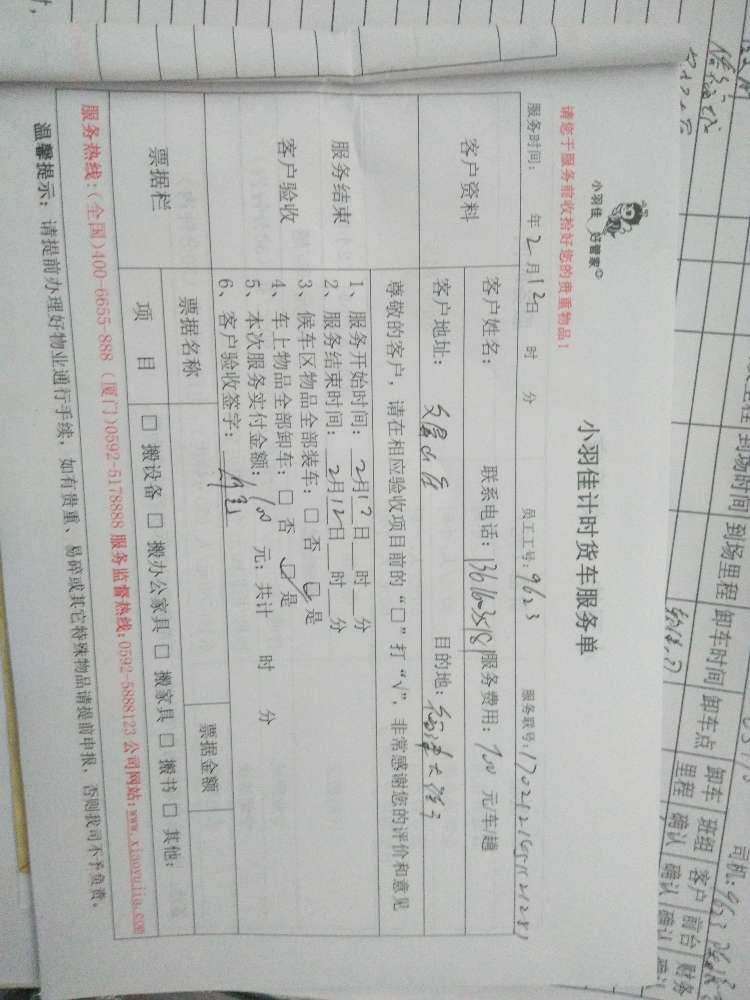 小羽佳 好管家
小羽佳计时货车服务单
请您于服务前收拾好您的贵重物品！
服务时间： 年2月12日 时 分 员工工号：9623 服务联号：
客户资料
客户姓名： 联系电话： 服务费用：700 元/车/趟
客户地址： 目的地：
尊敬的客户，请在相应验收项目前的“□”打“√”，非常感谢您的评价和意见
服务结束
客户验收
1、服务开始时间：2月12日 时 分
2、服务结束时间：2月12日 时 分
3、候车区物品全部装车：□ 否 □ 是
4、车上物品全部卸车：□ 否 □ 是
5、本次服务实付金额： 元；共计 时 分
6、客户验收签字：
票据栏
票据名称 票据金额
项 目 □ 搬设备 □ 搬办公家具 □ 搬家具 □ 搬书 □ 其他：
服务热线：(全国)400-6655-888 (厦门)0592-5178888 服务监督热线:0592-5888123 公司网站:www.xiaoyujia.com
温馨提示：请提前办理好物业通行手续，如有贵重、易碎或其它特殊物品请提前申报，否则我司不予负责。
司机：9623
到场时间 到场里程 卸车时间 卸车点 卸车里程 班组确认 客户确认 前台确认 财务确认